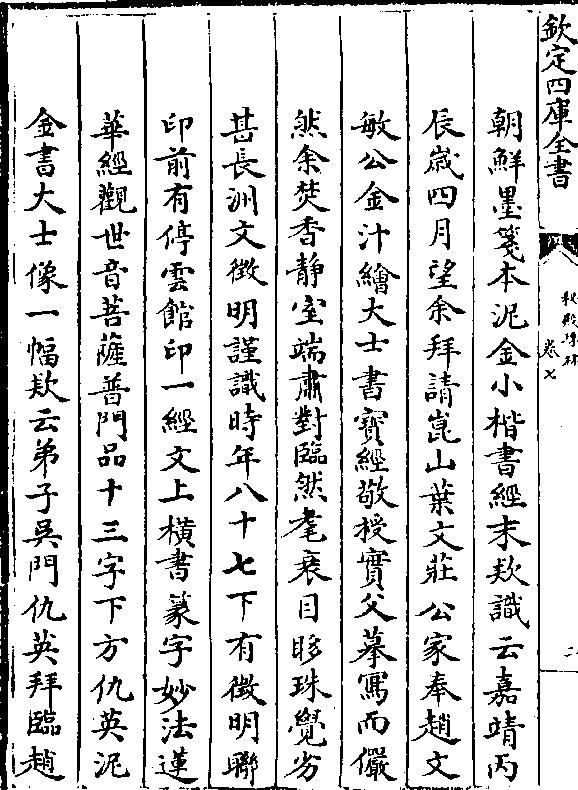 欽定四庫全書
秘殿珠林
卷七
朝鮮墨箋本泥金小楷書經末欵識云嘉靖丙
辰歲四月望余拜請崑山葉文莊公家奉趙文
敏公金汁繪大士書寳經敬授實父摹寫而儼
然余焚香静室端肅對臨然耄衰目眵殊覺劣
甚長洲文徴明謹識時年八十七下有徴明聯
印前有停雲館印一經文上橫書篆字妙法蓮
華經觀世音菩薩普門品十三字下方仇英泥
金書大士像一幅欵云弟子吳門仇英拜臨趙